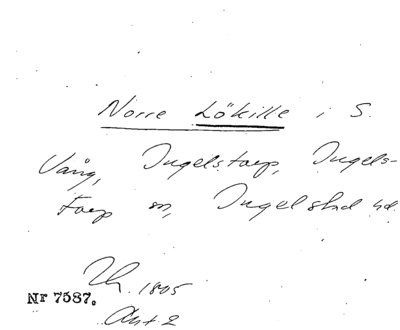 Norre Lökille i S.
Vång, Ingelstorp, Ingels-
torp sn, Ingelstad hd.
Uh. 1805
Nr 7587.
Akt 2